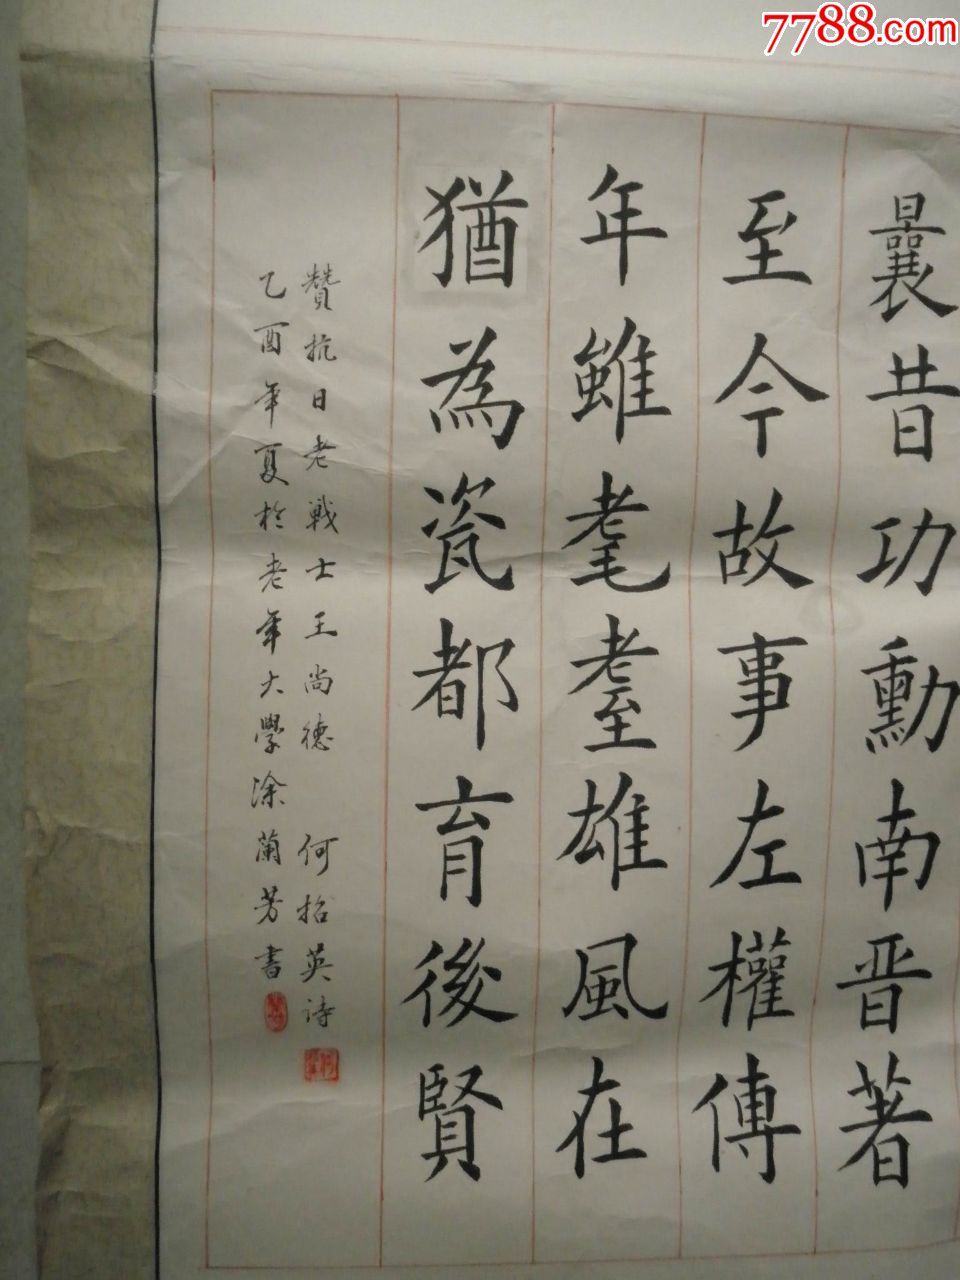 7788.com
曩昔功勳南晋著
至今故事左權傳
年雖耄耋雄風在
猶為瓷都育後賢
贊抗日老戰士王尚德 何招英诗
乙酉年夏於老年大學涂蘭芳書